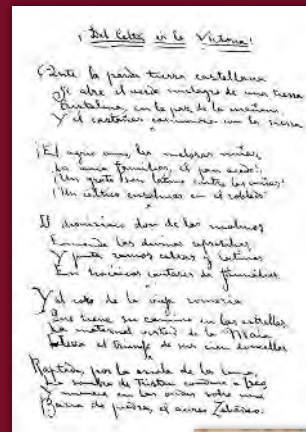 ¡Del Celta es la Victoria!
Ante la parda tierra castellana
Se abre el verde milagro de una tierra
Cristalina, en la paz de la mañana
Y el castañar comienza con la sierra
¡El agro vino, las melosas niñas,
La vaca familiar, el pan acedo!
¡Un grato son latino entre las viñas!
¡Un céltico ensalmar en el robledo!
El dionisiaco don de los molinos
Enciende las divinas represalias,
Y junta ramos celtas y latinos
En trocaicos cantares de
Y al coto de la vieja romería
Que tiene su camino en las estrellas
La maternal virtud de la Maía
Eleva el triunfo de sus cien doncellas
Raptada, por la escala de la luna,
La sombra de Tristan conduce a
Y amanece en las ondas sobre una
Barca de piedra, el aureo Zebedeo.